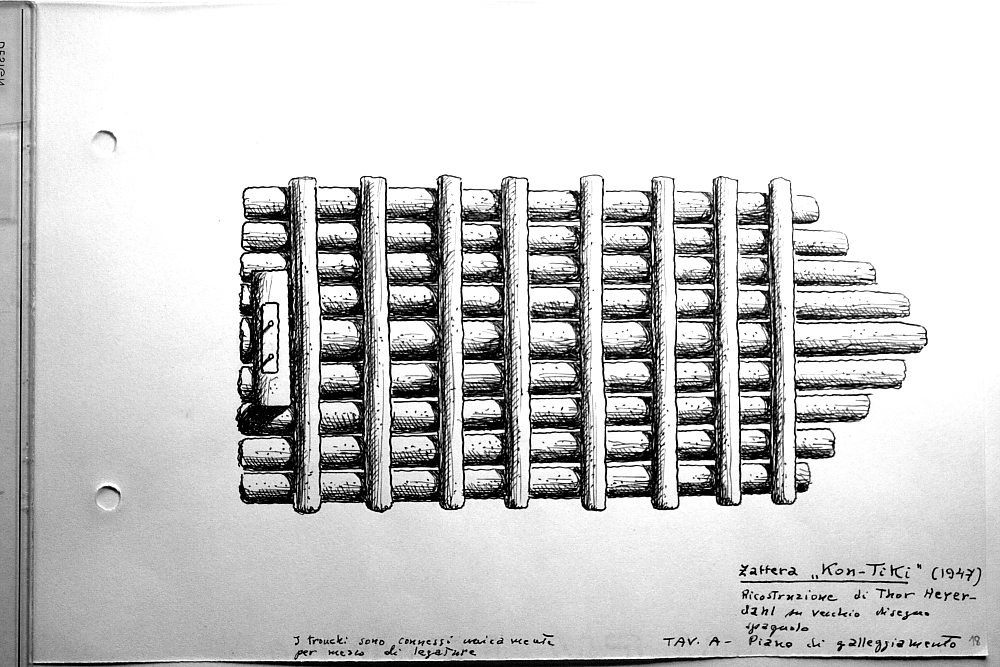 DESIGN
Zattera „Kon-Tiki" (1947)
Ricostruzione di Thor Heyer-
dahl su vecchio disegno
spagnolo
I tronchi sono connessi unicamente
per mezzo di legature
TAV. A - Piano di galleggiamento 18